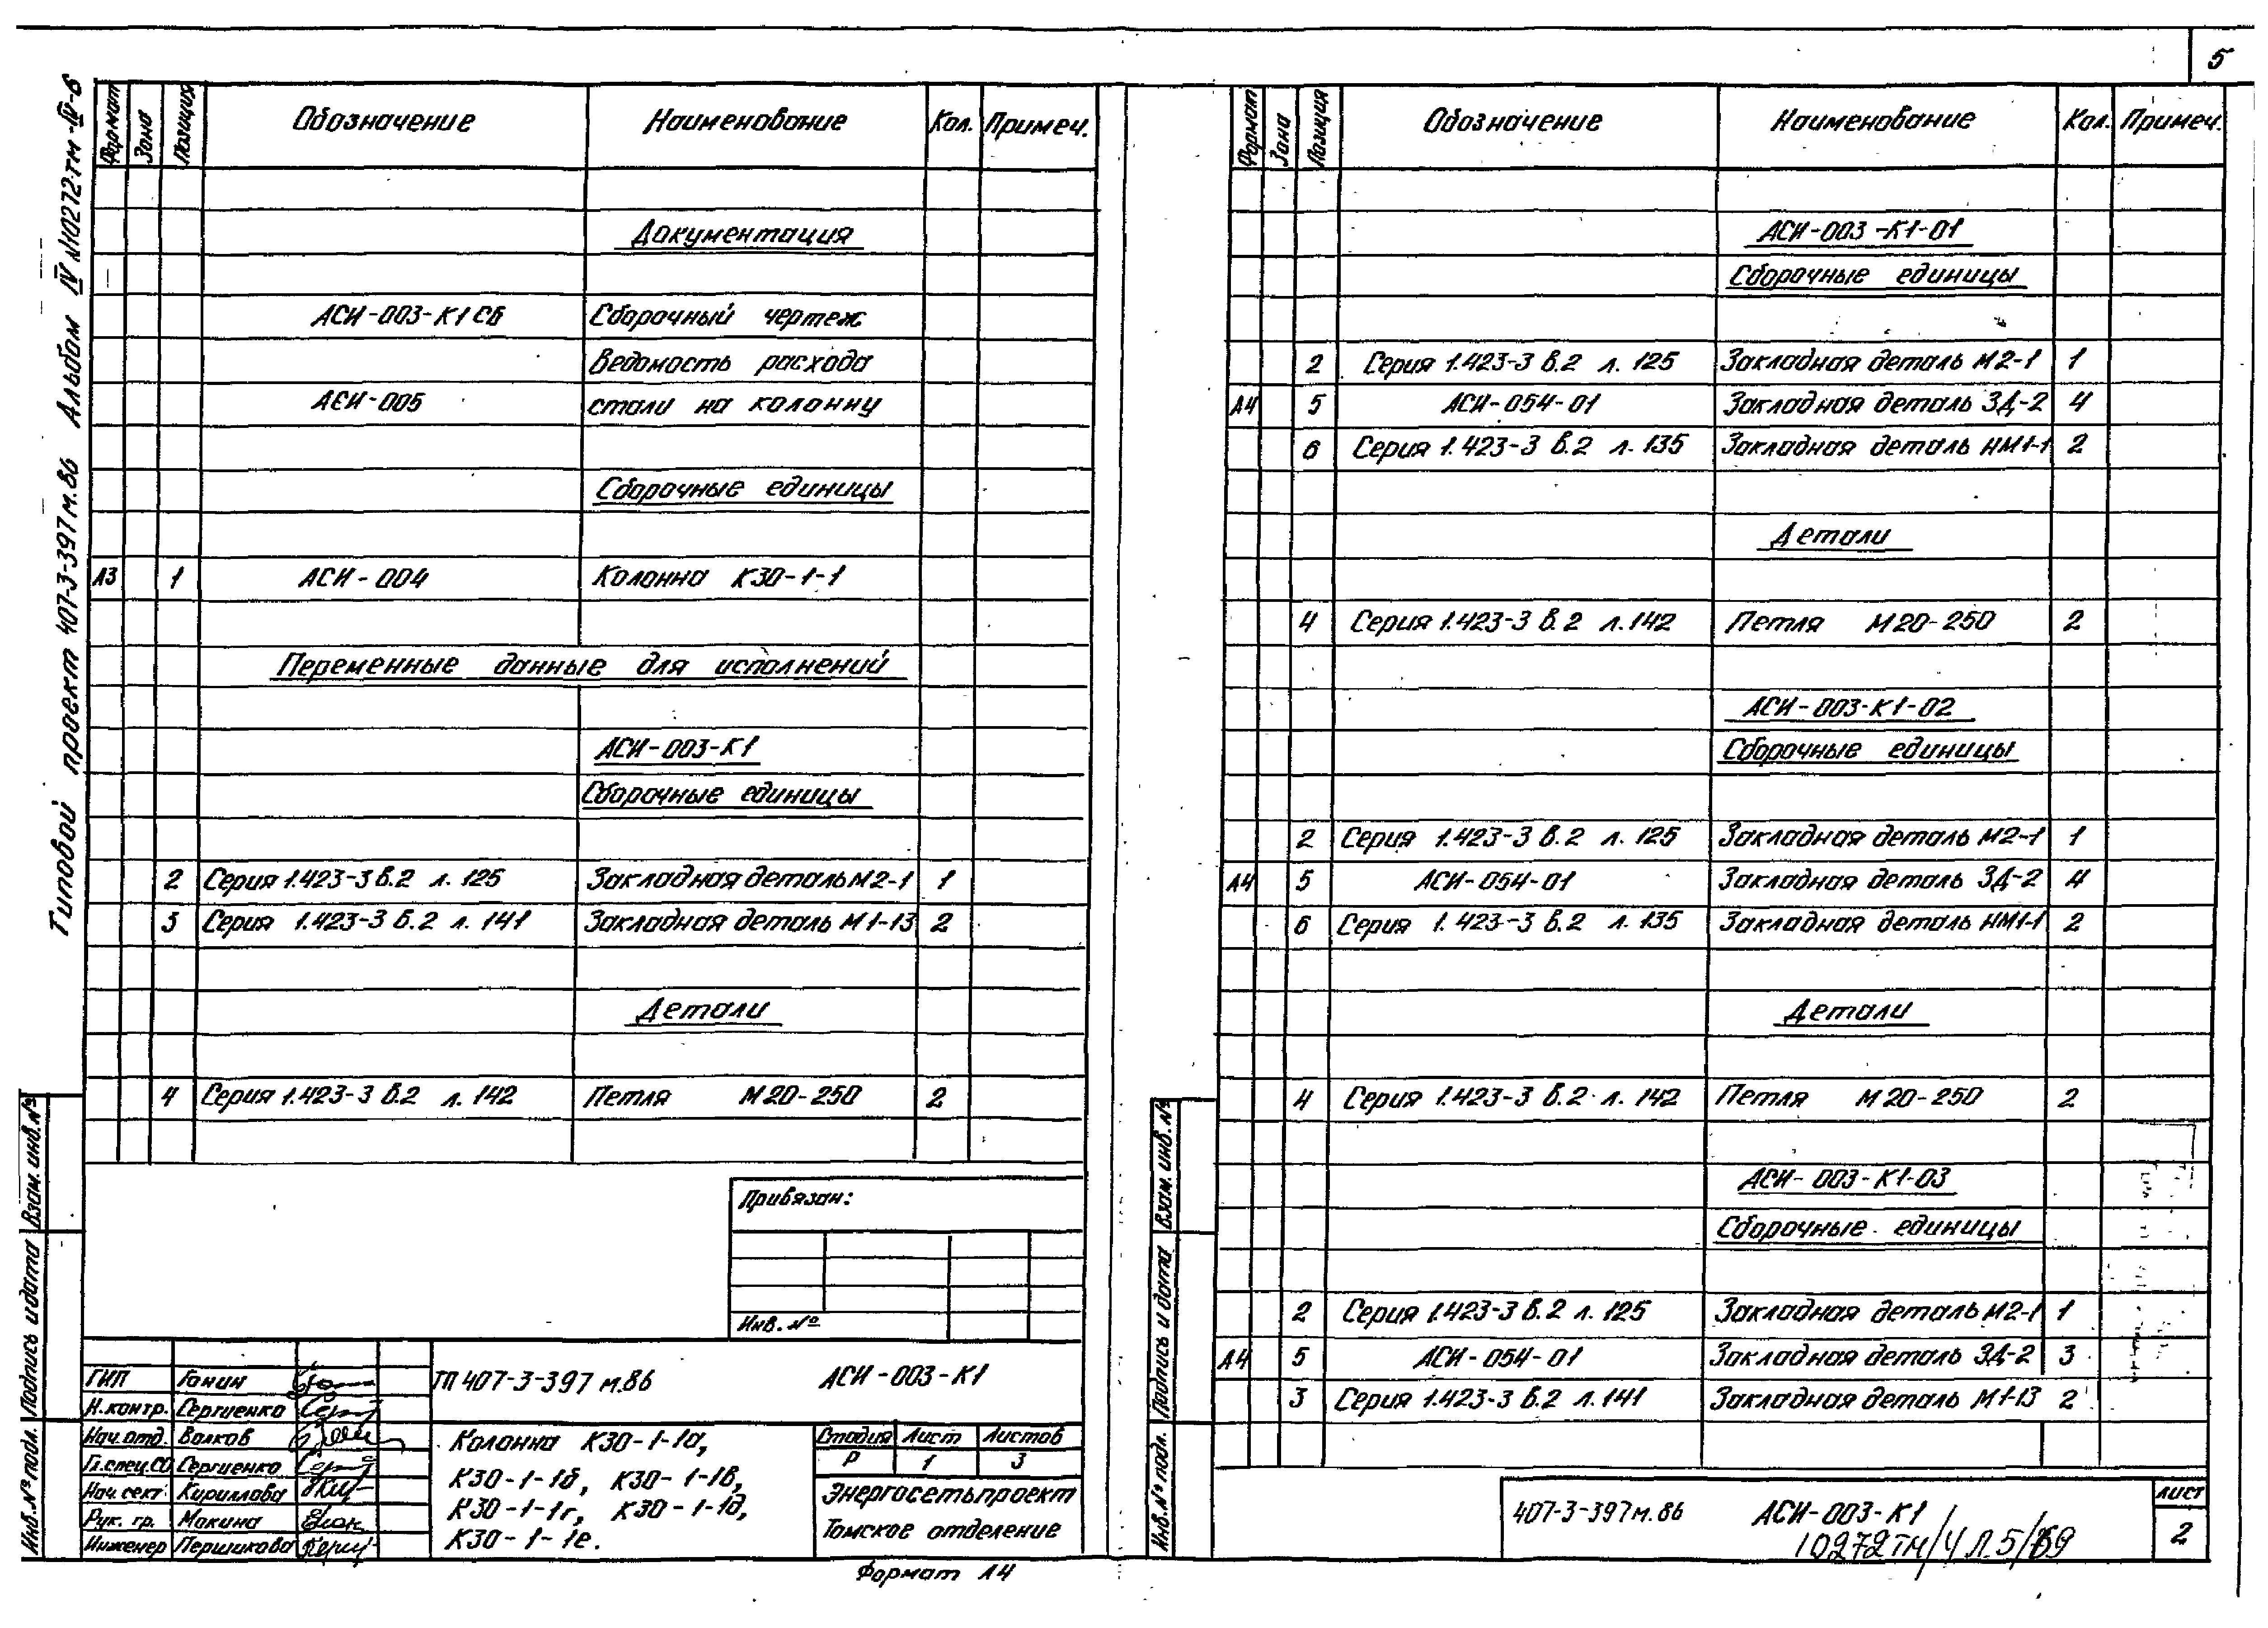 5
Типовой проект 407-3-397м.86 Альбом IV
Формат Зона Позиция Обозначение Наименование Кол. Примеч.
Документация
АСИ-003-К1 СБ Сборочный чертеж
Ведомость расхода
АСИ-005 стали на колонну
Сборочные единицы
А3 1 АСИ-004 Колонна К30-1-1
Переменные данные для исполнений
АСИ-003-К1
Сборочные единицы
2 Серия 1.423-3 в.2 л. 125 Закладная деталь М2-1 1
3 Серия 1.423-3 в.2 л. 141 Закладная деталь М1-13 2
Детали
4 Серия 1.423-3 в.2 л. 142 Петля М20-250 2
Привязан:
Инв. №
ГИП Ганин ТП 407-3-397 м.86 АСИ-003-К1
Н.контр. Сергиенко
Нач.отд. Волков
Гл.спец.СО Сергиенко
Нач.сект. Кириллова
Рук. гр. Макина
Инженер Першикова
Колонна К30-1-1а,
К30-1-1б, К30-1-1в,
К30-1-1г, К30-1-1д,
К30-1-1е.
Стадия Лист Листов
Р 1 3
Энергосетьпроект
Томское отделение
Формат А4
Взам. инв. №
Подпись и дата
Инв. № подл.
Формат Зона Позиция Обозначение Наименование Кол. Примеч.
АСИ-003-К1-01
Сборочные единицы
2 Серия 1.423-3 в.2 л. 125 Закладная деталь М2-1 1
А4 5 АСИ-054-01 Закладная деталь ЗД-2 4
6 Серия 1.423-3 в.2 л. 135 Закладная деталь НМ1-1 2
Детали
4 Серия 1.423-3 в.2 л. 142 Петля М20-250 2
АСИ-003-К1-02
Сборочные единицы
2 Серия 1.423-3 в.2 л. 125 Закладная деталь М2-1 1
А4 5 АСИ-054-01 Закладная деталь ЗД-2 4
6 Серия 1.423-3 в.2 л. 135 Закладная деталь НМ1-1 2
Детали
4 Серия 1.423-3 в.2 л. 142 Петля М20-250 2
АСИ-003-К1-03
Сборочные единицы
2 Серия 1.423-3 в.2 л. 125 Закладная деталь М2-1 1
А4 5 АСИ-054-01 Закладная деталь ЗД-2 3
3 Серия 1.423-3 в.2 л. 141 Закладная деталь М1-13 2
407-3-397м.86 АСИ-003-К1
Лист
2
Взам. инв. №
Подпись и дата
Инв. № подл.